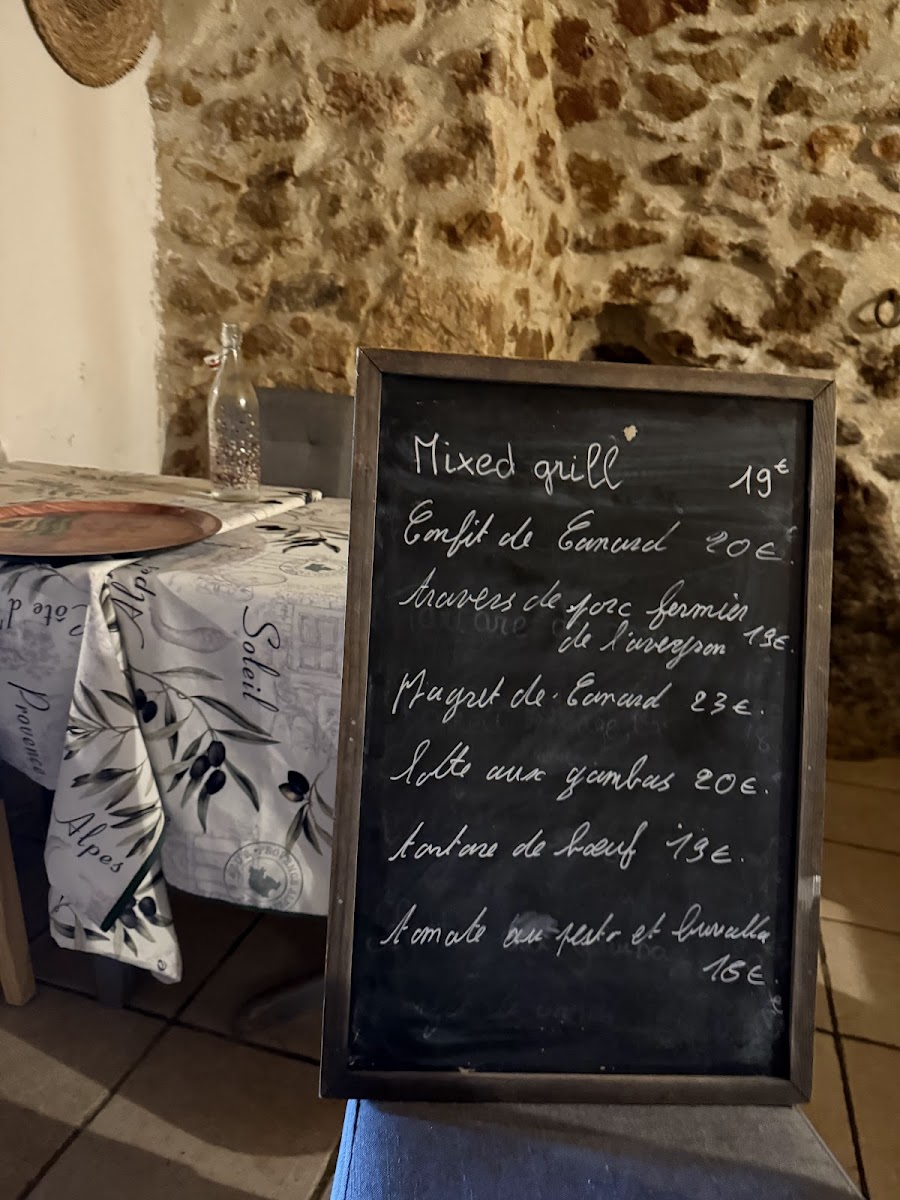 Mixed grill 19€
Confit de Canard 20€.
travers de porc fermier
de l'aveyron 19€.
Magret de Canard 23€.
lotte aux gambas 20€.
tartare de bœuf 19€.
tomate au pesto et burratta
16€
Soleil
Côte d'
Provence
Alpes